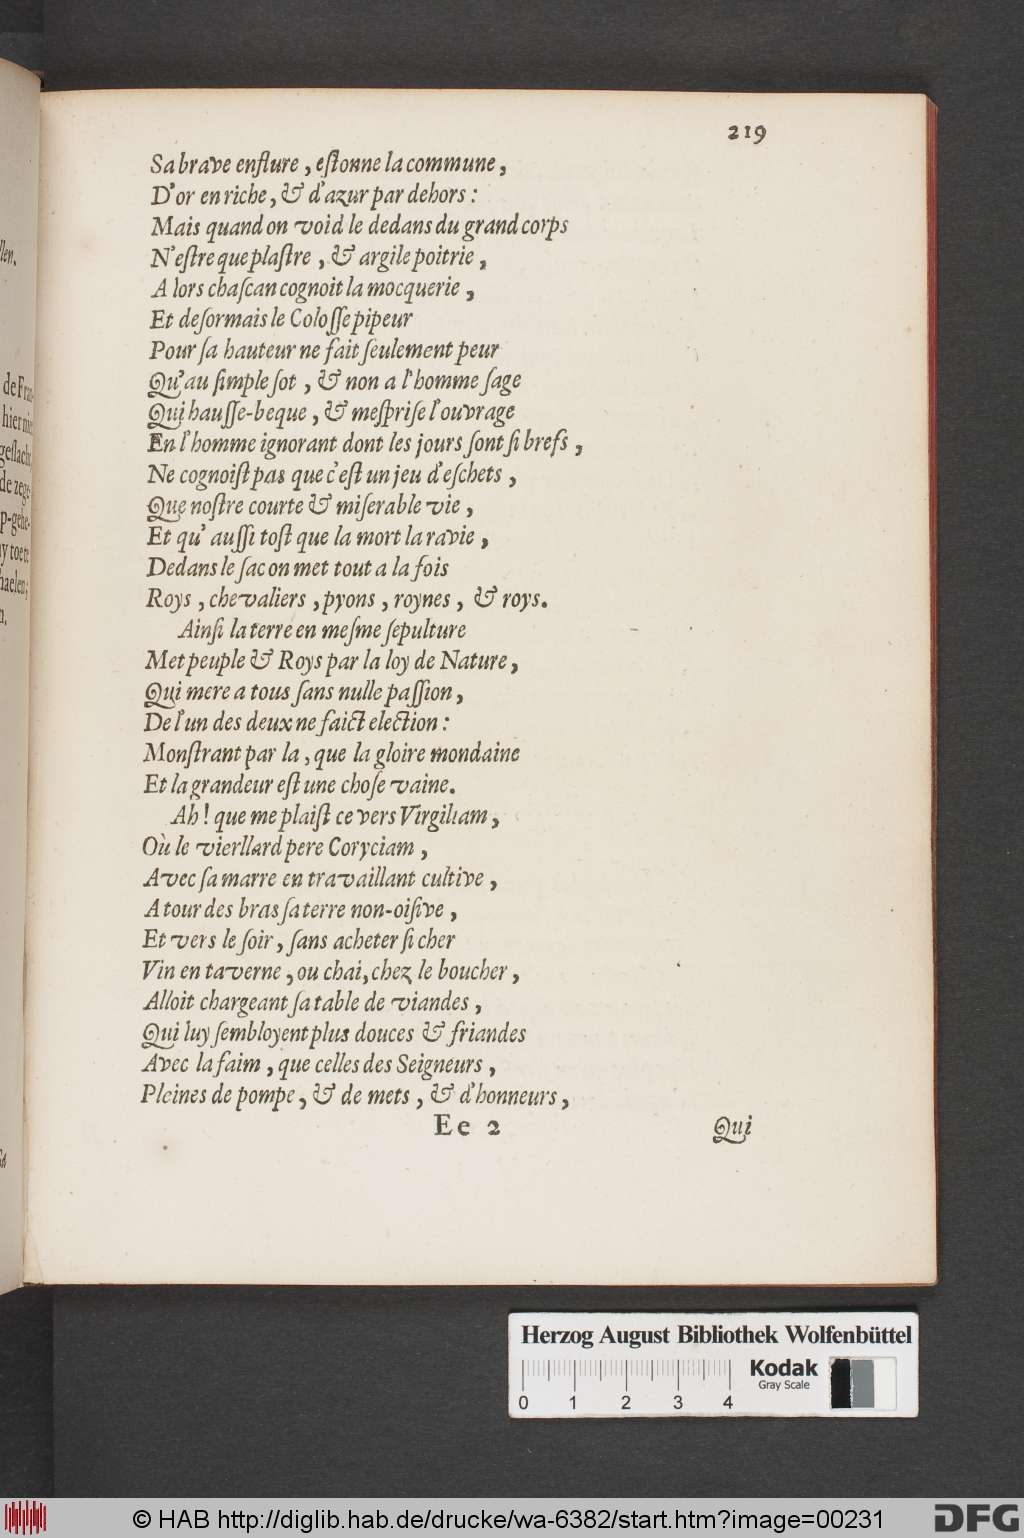 219
Sa brave enflure, estonne la commune,
D'or enriche, & d'azur par dehors:
Mais quand on void le dedans du grand corps
N'estre que plastre, & argile poitrie,
A lors chascan cognoit la mocquerie,
Et desormais le Colosse pipeur
Pour sa hauteur ne fait seulement peur
Qu'au simple sot, & non a l'homme sage
Qui hausse-beque, & mesprise l'ouvrage
En l'homme ignorant dont les jours sont si brefs,
Ne cognoist pas que c'est un jeu d'eschets,
Que nostre courte & miserable vie,
Et qu' aussi tost que la mort la ravie,
Dedans le sac on met tout a la fois
Roys, chevaliers, pyons, roynes, & roys.
Ainsi la terre en mesme sepulture
Met peuple & Roys par la loy de Nature,
Qui mere a tous sans nulle passion,
De l'un des deux ne faict election:
Monstrant par la, que la gloire mondaine
Et la grandeur est une chose vaine.
Ah! que me plaist ce vers Virgiliam,
Où le vierllard pere Coryciam,
Avec sa marre en travaillant cultive,
A tour des bras sa terre non-oisive,
Et vers le soir, sans acheter si cher
Vin en taverne, ou chai, chez le boucher,
Alloit chargeant sa table de viandes,
Qui luy sembloyent plus douces & friandes
Avec la faim, que celles des Seigneurs,
Pleines de pompe, & de mets, & d'honneurs,
Ee 2 Qui
llen.
de Fran-
hier nie
geslacht,
de zege
p-gehe-
y toe te
haelen;
n.
Sa
Herzog August Bibliothek Wolfenbüttel
Kodak
Gray Scale
0 1 2 3 4
© HAB http://diglib.hab.de/drucke/wa-6382/start.htm?image=00231
DFG